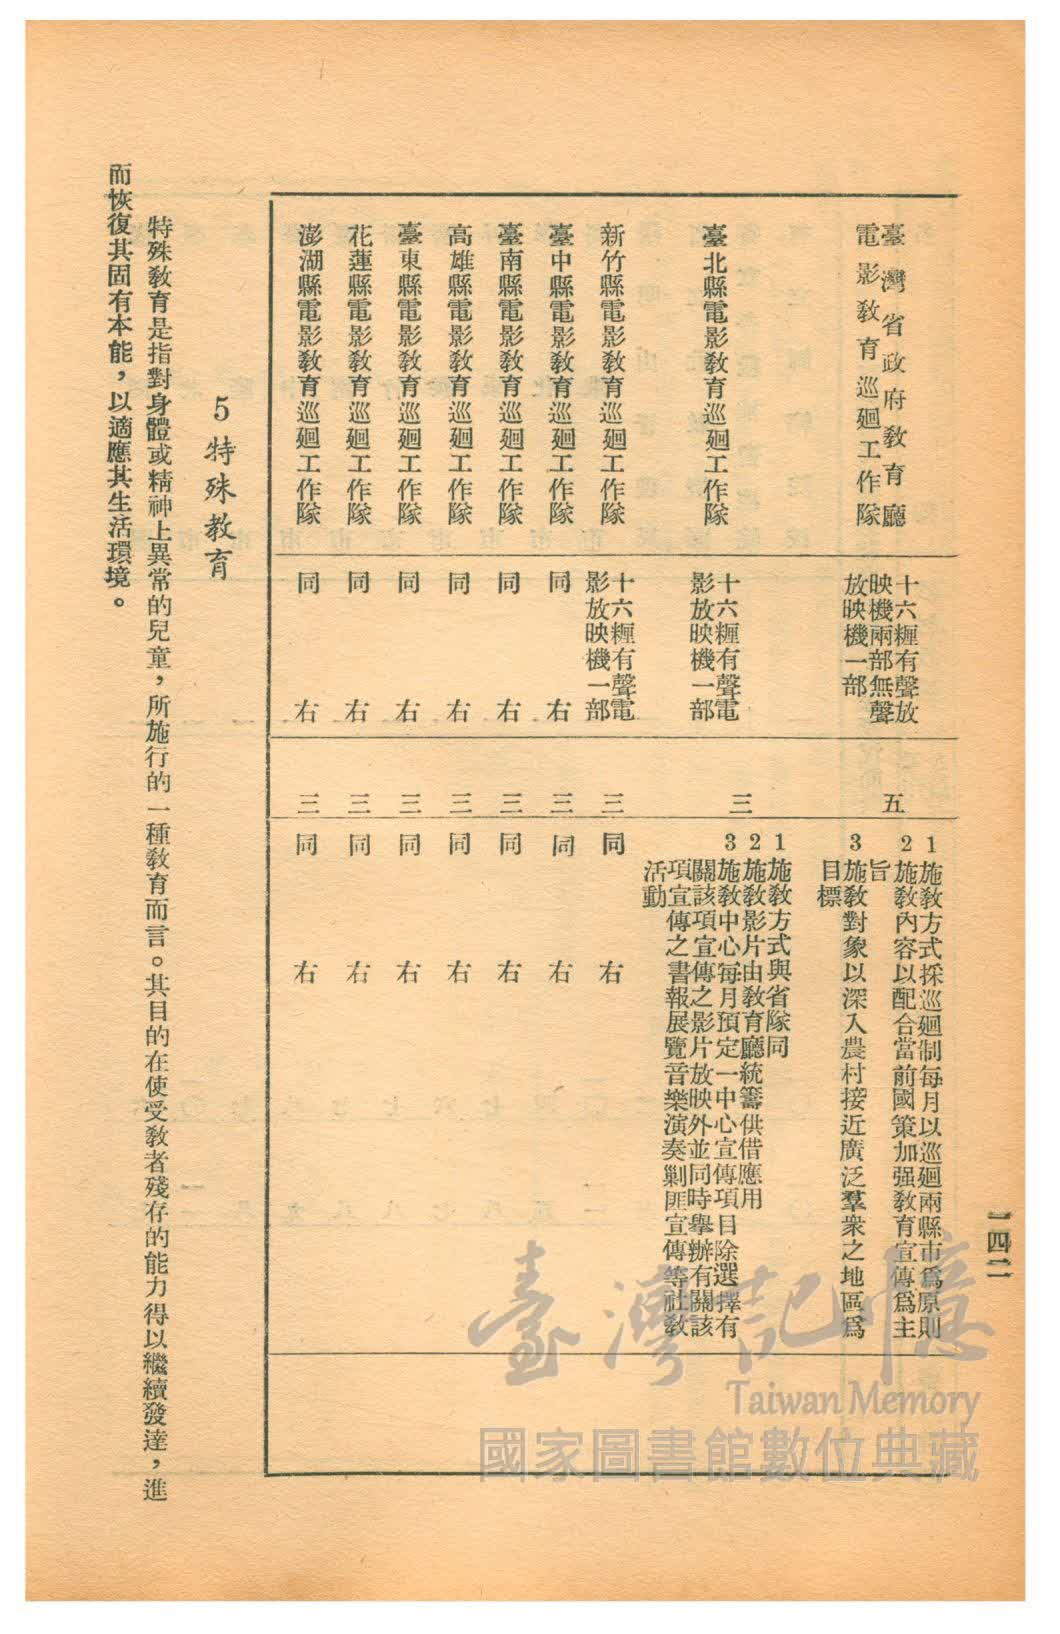 臺灣省政府敎育廳
電影敎育巡廻工作隊
十六糎有聲放
映機兩部無聲
放映機一部
五
1施敎方式採巡廻制每月以巡廻兩縣市爲原則
2施敎內容以配合當前國策加强敎育宣傳爲主
旨
3施敎對象以深入農村接近廣泛羣衆之地區爲
目標
臺北縣電影敎育巡廻工作隊
十六糎有聲電
影放映機一部
三
1施敎方式與省隊同
2施敎影片由敎育廳統籌供借應用
3施敎中心每月預定一中心宣傳項目除選擇有
關該項宣傳之影片放映外並同時舉辦有關該
項宣傳之書報展覽音樂演奏剿匪宣傳等社敎
活動
新竹縣電影敎育巡廻工作隊
十六糎有聲電
影放映機一部
三
同右
臺中縣電影敎育巡廻工作隊
同右
三
同右
臺南縣電影敎育巡廻工作隊
同右
三
同右
高雄縣電影敎育巡廻工作隊
同右
三
同右
臺東縣電影敎育巡廻工作隊
同右
三
同右
花蓮縣電影敎育巡廻工作隊
同右
三
同右
澎湖縣電影敎育巡廻工作隊
同右
三
同右
5特殊敎育
特殊敎育是指對身體或精神上異常的兒童，所施行的一種敎育而言。其目的在使受敎者殘存的能力得以繼續發達，進
而恢復其固有本能，以適應其生活環境。
一四二
臺灣記憶
Taiwan Memory
國家圖書館數位典藏